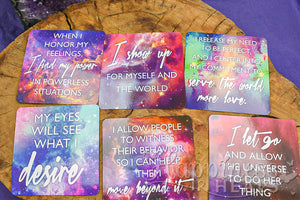 WHEN I
HONOR MY
FEELINGS,
I find my power
IN POWERLESS
SITUATIONS
I shoot up
FOR MYSELF AND
THE WORLD
I RELEASE MY NEED
TO BE PERFECT
AND I CENTER INTO
MY COMMITMENT TO
serve the world
more love.
MY EYES
WILL SEE
WHAT I
desire
I ALLOW PEOPLE TO
WITNESS
THEIR BEHAVIOR
SO I CAN HELP
THEM
move beyond it.
I let go
AND ALLOW
THE UNIVERSE
TO DO HER
THING